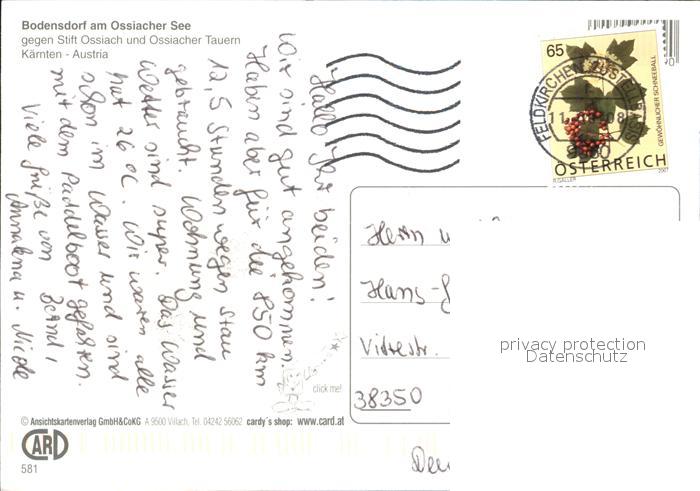 Bodensdorf am Ossiacher See
gegen Stift Ossiach und Ossiacher Tauern
Kärnten - Austria
Hallo Ihr beiden!
Wir sind gut angekommen.
Haben aber für die 850 km
12,5 Stunden wegen Stau
gebraucht. Wohnung und
Wetter sind super. Das Wasser
hat 26 °C. Wir waren alle
schon im Wasser und sind
mit dem Paddelboot gefahren.
Viele Grüße von Bernd,
u. Nicole
65
ÖSTERREICH
GEWÖHNLICHER SCHNEEBALL
R.GALLER
2007
FELDKIRCHEN
Herrn u
Hans-
38350
privacy protection
Datenschutz
click me!
© Ansichtskartenverlag GmbH&CoKG A 9500 Villach, Tel. 04242 56062 cardy´s shop: www.card.at
CARD
581